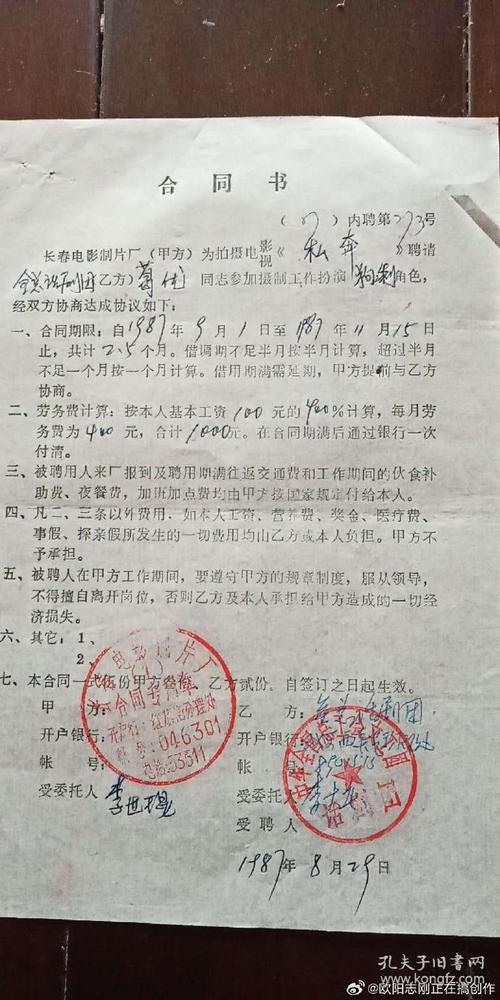 合同书
(87)内聘第273号
长春电影制片厂(甲方)为拍摄电影视《私奔》聘请
全总话剧团(乙方)葛优同志参加摄制工作扮演角色,
经双方协商达成协议如下:
一、合同期限:自1987年9月1日至1987年11月15日
止,共计2.5个月。借调期不足半月按半月计算,超过半月
不足一个月按一个月计算。借用期满需延期,甲方提前与乙方
协商。
二、劳务费计算:按本人基本工资100元的400%计算,每月劳
务费为400元,合计1000元。在合同期满后通过银行一次
付清。
三、被聘用人来厂报到及聘用期满往返交通费和工作期间的伙食补
助费、夜餐费,加班加点费均由甲方按国家规定付给本人。
四、凡二、三条以外费用,如本人工资、营养费、奖金、医疗费、
事假、探亲假所发生的一切费用均由乙方或本人负担。甲方不
予承担。
五、被聘人在甲方工作期间,要遵守甲方的规章制度,服从领导,
不得擅自离开岗位,否则乙方及本人承担给甲方造成的一切经
济损失。
六、其它:1、
2、
七、本合同一式伍份甲方叁份,乙方贰份,自签订之日起生效。
甲方:
开户银行:
帐号:
受委托人
电影制片厂
合同专用章
046301
电话:53311
乙方:全总话剧团
开户银行:
帐号:
受委托人
受聘人
话剧团
1987年8月29日
孔夫子旧书网
www.kongfz.com
@欧阳志刚正在搞创作